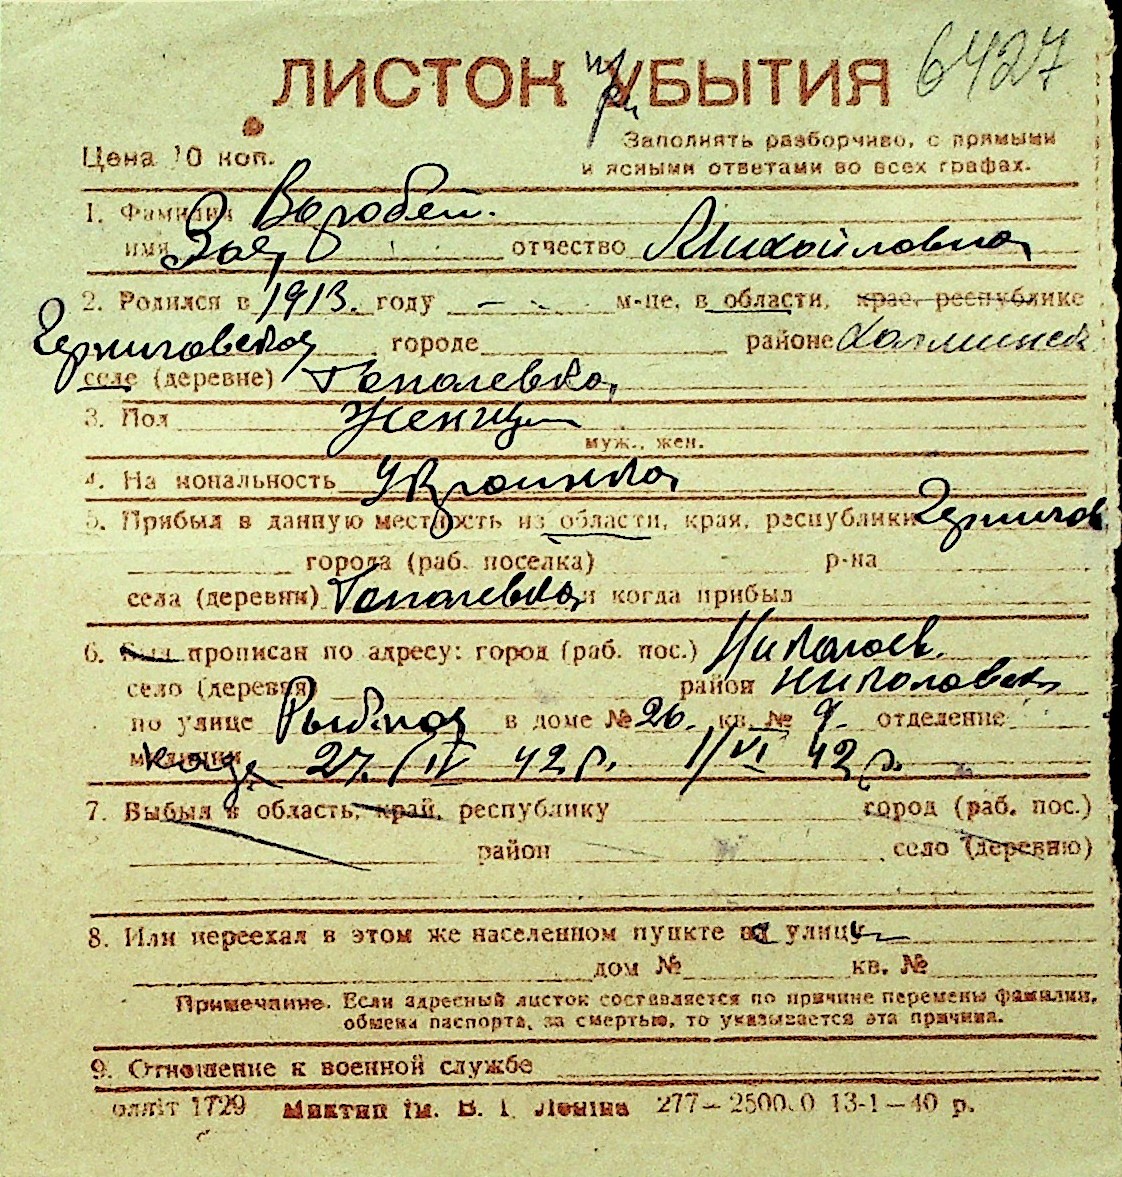 6427
ЛИСТОК при УБЫТИЯ
Цена 10 коп.
Заполнять разборчиво, с прямыми
и ясными ответами во всех графах.
1. Фамилия Воробей.
имя Зоя отчество Михайловна
2. Родился в 1913. году — м-це, в области, крае, республике
Черниговской городе районе
селе (деревне) Тополевка
3. Пол Женщ
муж., жен.
4. Национальность Украинка
5. Прибыл в данную местность из области, края, республики Чернигов
города (раб. поселка) р-на
села (деревни) Тополевка и когда прибыл
6. Был прописан по адресу: город (раб. пос.) Николаев.
село (деревня) район Николаевск
по улице Рыбная в доме № 26. кв. № 9. отделение
милиции 27/IV 42 г. 1/VI 42 г.
7. Выбыл в область, край, республику город (раб. пос.)
район село (деревню)
8. Или переехал в этом же населенном пункте на улицу —
дом № кв. №
Примечание. Если адресный листок составляется по причине перемены фамилии,
обмена паспорта, за смертью, то указывается эта причина.
9. Отношение к военной службе
олліт 1729 Миктип ім. В. І. Леніна 277—25000 13-1—40 р.